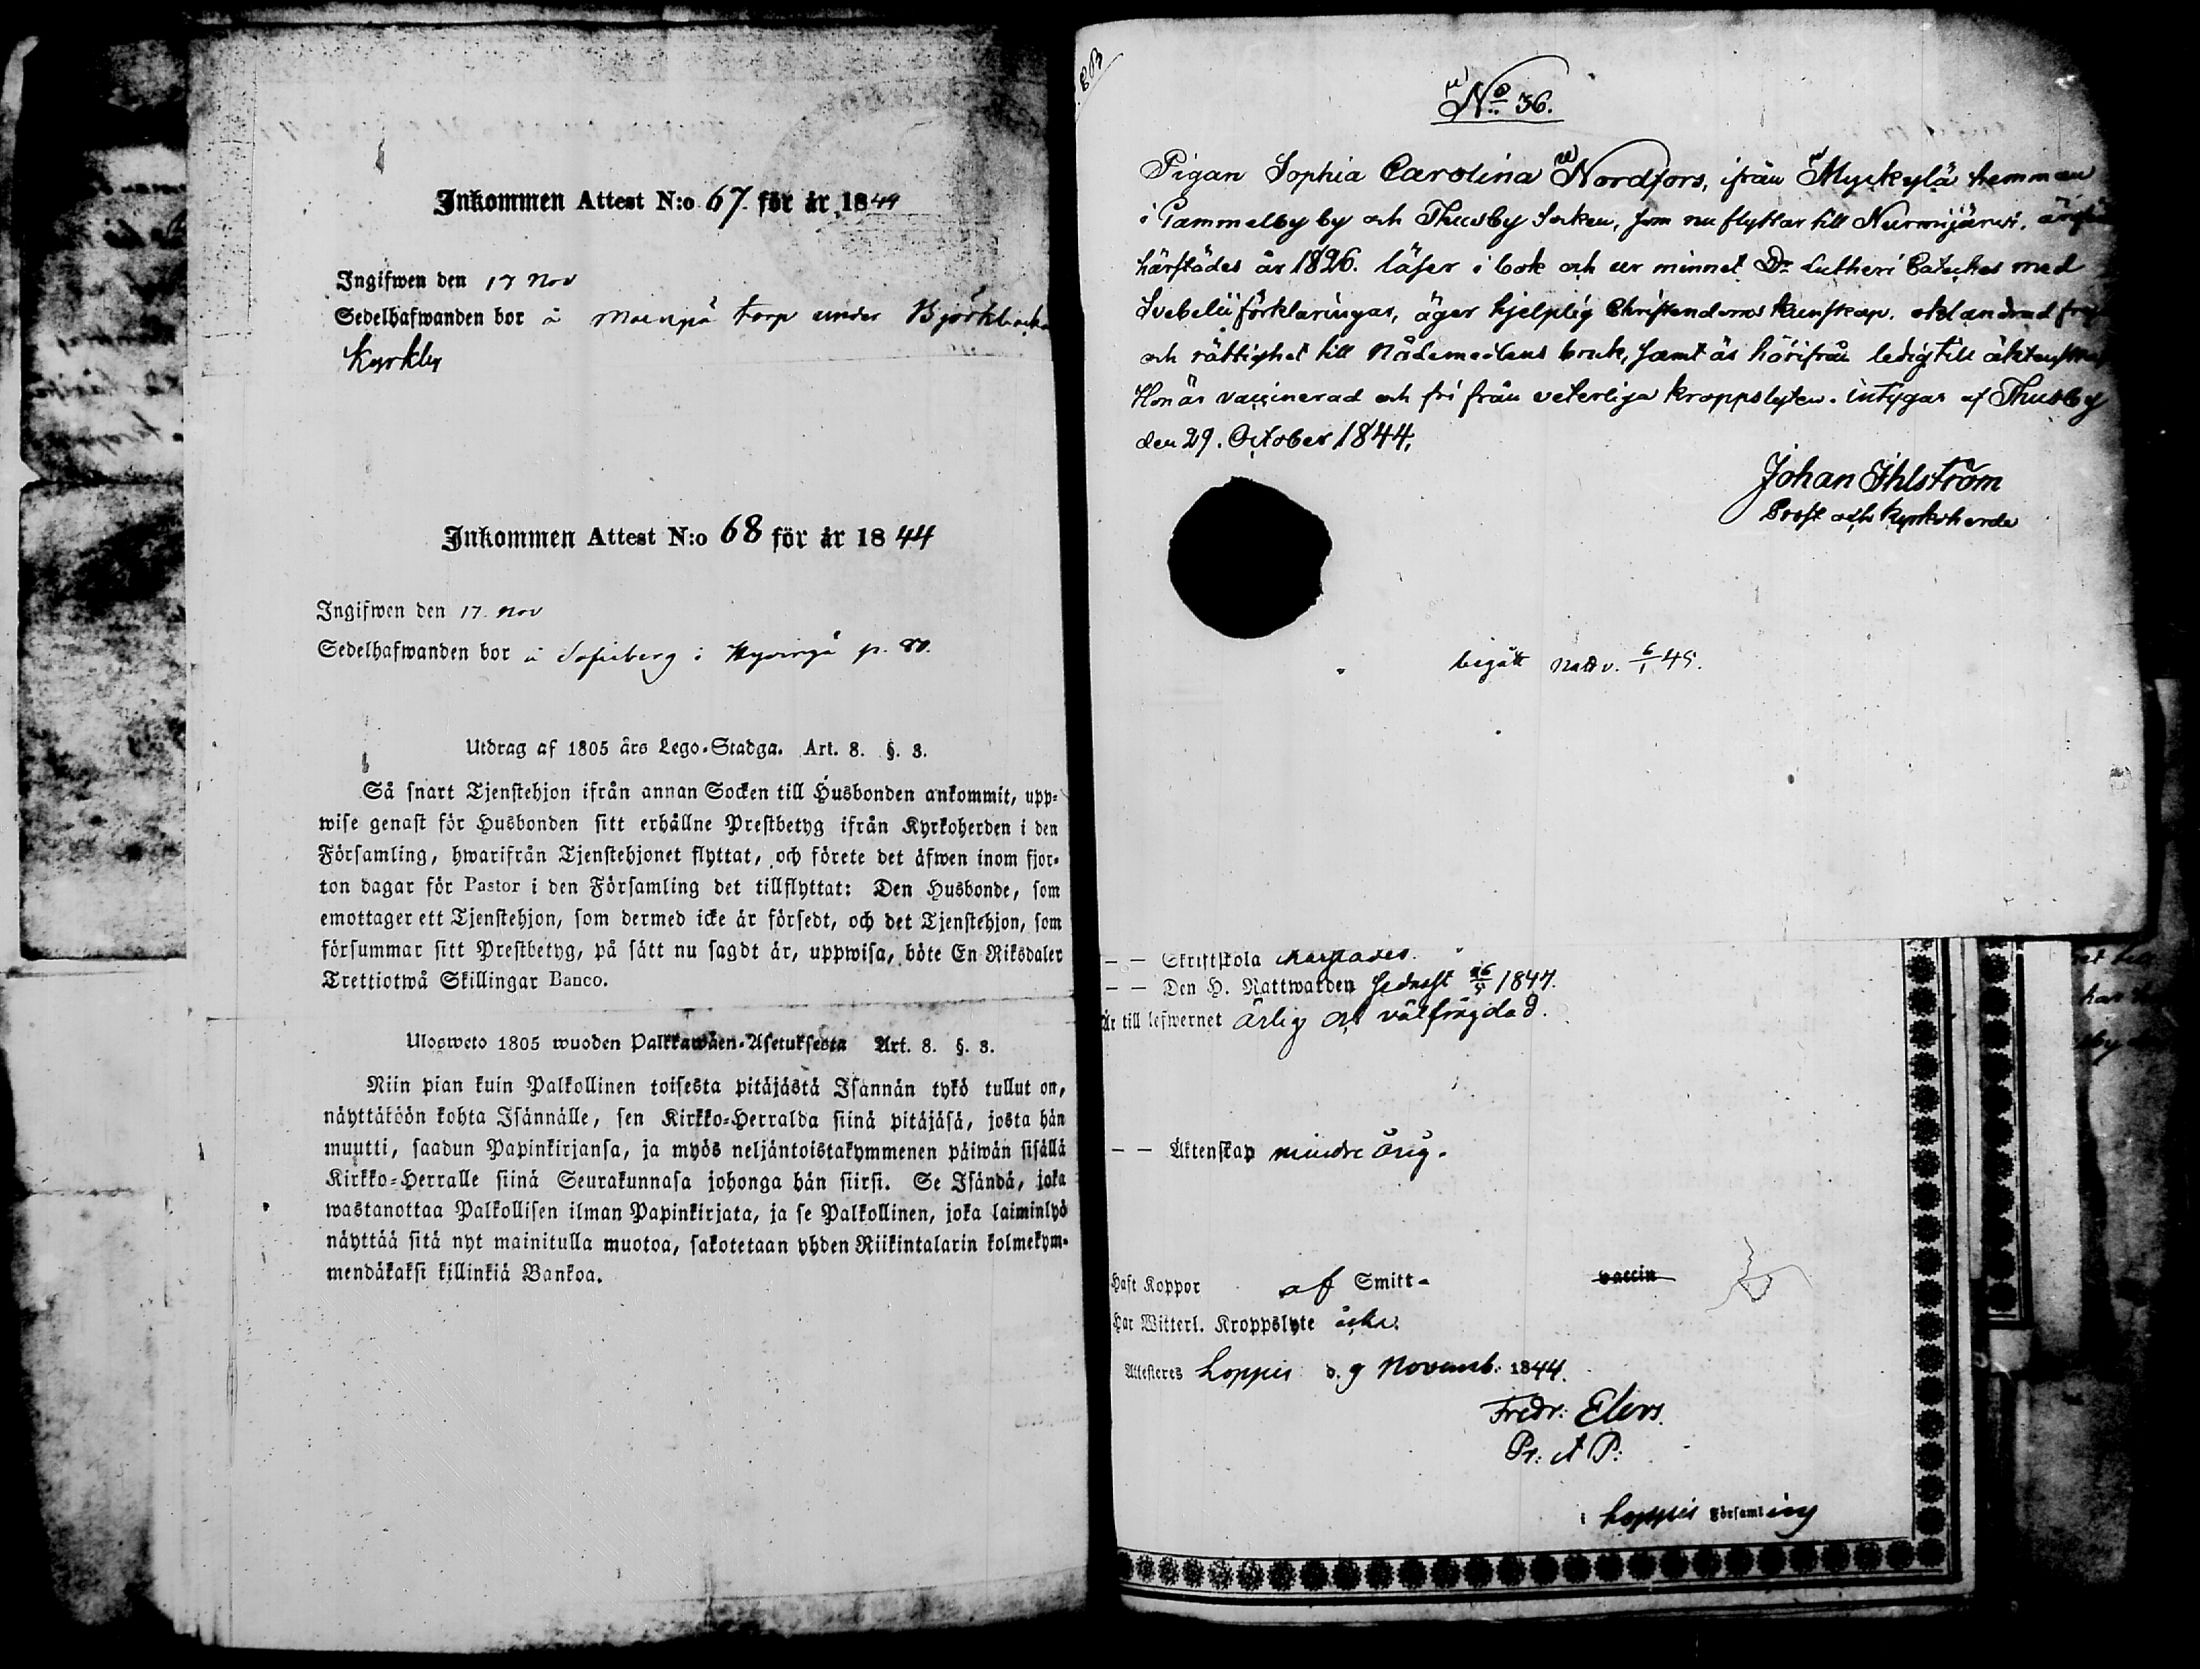 Inkommen Attest N:o 67 för år 1844
Ingifwen den 17 Nov
Sedelhafwanden bor å torp under Björkbacka
Kyrkby
Inkommen Attest N:o 68 för år 1844
Ingifwen den 17. Nov
Sedelhafwanden bor å Sofieberg i Hyvinge p. 80.
Utdrag af 1805 års Lego-Stadga. Art. 8. §. 3.
Så snart Tjenstehjon ifrån annan Socken till Husbonden ankommit, upp-
wise genast för Husbonden sitt erhållne Prestbetyg ifrån Kyrkoherden i den
Församling, hwarifrån Tjenstehjonet flyttat, och förete det äfwen inom fjor-
ton dagar för Pastor i den Församling det tillflyttat: Den Husbonde, som
emottager ett Tjenstehjon, som dermed icke är försedt, och det Tjenstehjon, som
försummar sitt Prestbetyg, på sätt nu sagdt är, uppwisa, böte En Riksdaler
Trettiotwå Skillingar Banco.
Ulosweto 1805 wuoden Palkkawäen-Asetuksesta Art. 8. §. 3.
Niin pian kuin Palkollinen toisesta pitäjästä Isännän tykö tullut on,
näyttäköön kohta Isännälle, sen Kirkko-Herralda siinä pitäjäsä, josta hän
muutti, saadun Papinkirjansa, ja myös neljäntoistakymmenen päiwän sisällä
Kirkko-Herralle siinä Seurakunnasa johonga hän siirsi. Se Isändä, joka
wastanottaa Palkollisen ilman Papinkirjata, ja se Palkollinen, joka laiminlyö
näyttää sitä nyt mainitulla muotoa, sakotetaan yhden Riikintalarin kolmekym-
mendäkaksi killinkiä Bankoa.
No 36.
Pigan Sophia Carolina Nordfors, ifrån Myckylä hemman
i Gammelby by och Thusby Socken, som nu flyttar till Nurmijärwi, är
härstädes år 1826. läser i bok och ur minnet Dr Lutheri Cateches med
Svebelii förklaringar, äger hjelplig Christendoms kunskap. oklandrad frejd
och rättighet till Nådemedlens bruk, samt är härifrån ledig till äktenskap
Hon är vaccinerad och fri från veterliga kroppslyten. intygar af Thusby
den 29. October 1844.
Johan Ihlström
Prost och Kyrkoherde
begått Nattv. 6/1 45.
– – Skriftskola härstädes.
– – Den H. Nattwarden sednast 26/5 1844.
Är till lefwernet ärlig och välfrägdad.
– – Äktenskap mindre årig.
Haft Koppor af Smitt- vaccin
Har Witterl. Kroppslyte icke.
Attesteres Loppis d. 9 Novemb: 1844.
Fredr: Elers.
Pr: A P:
i Loppis Församling